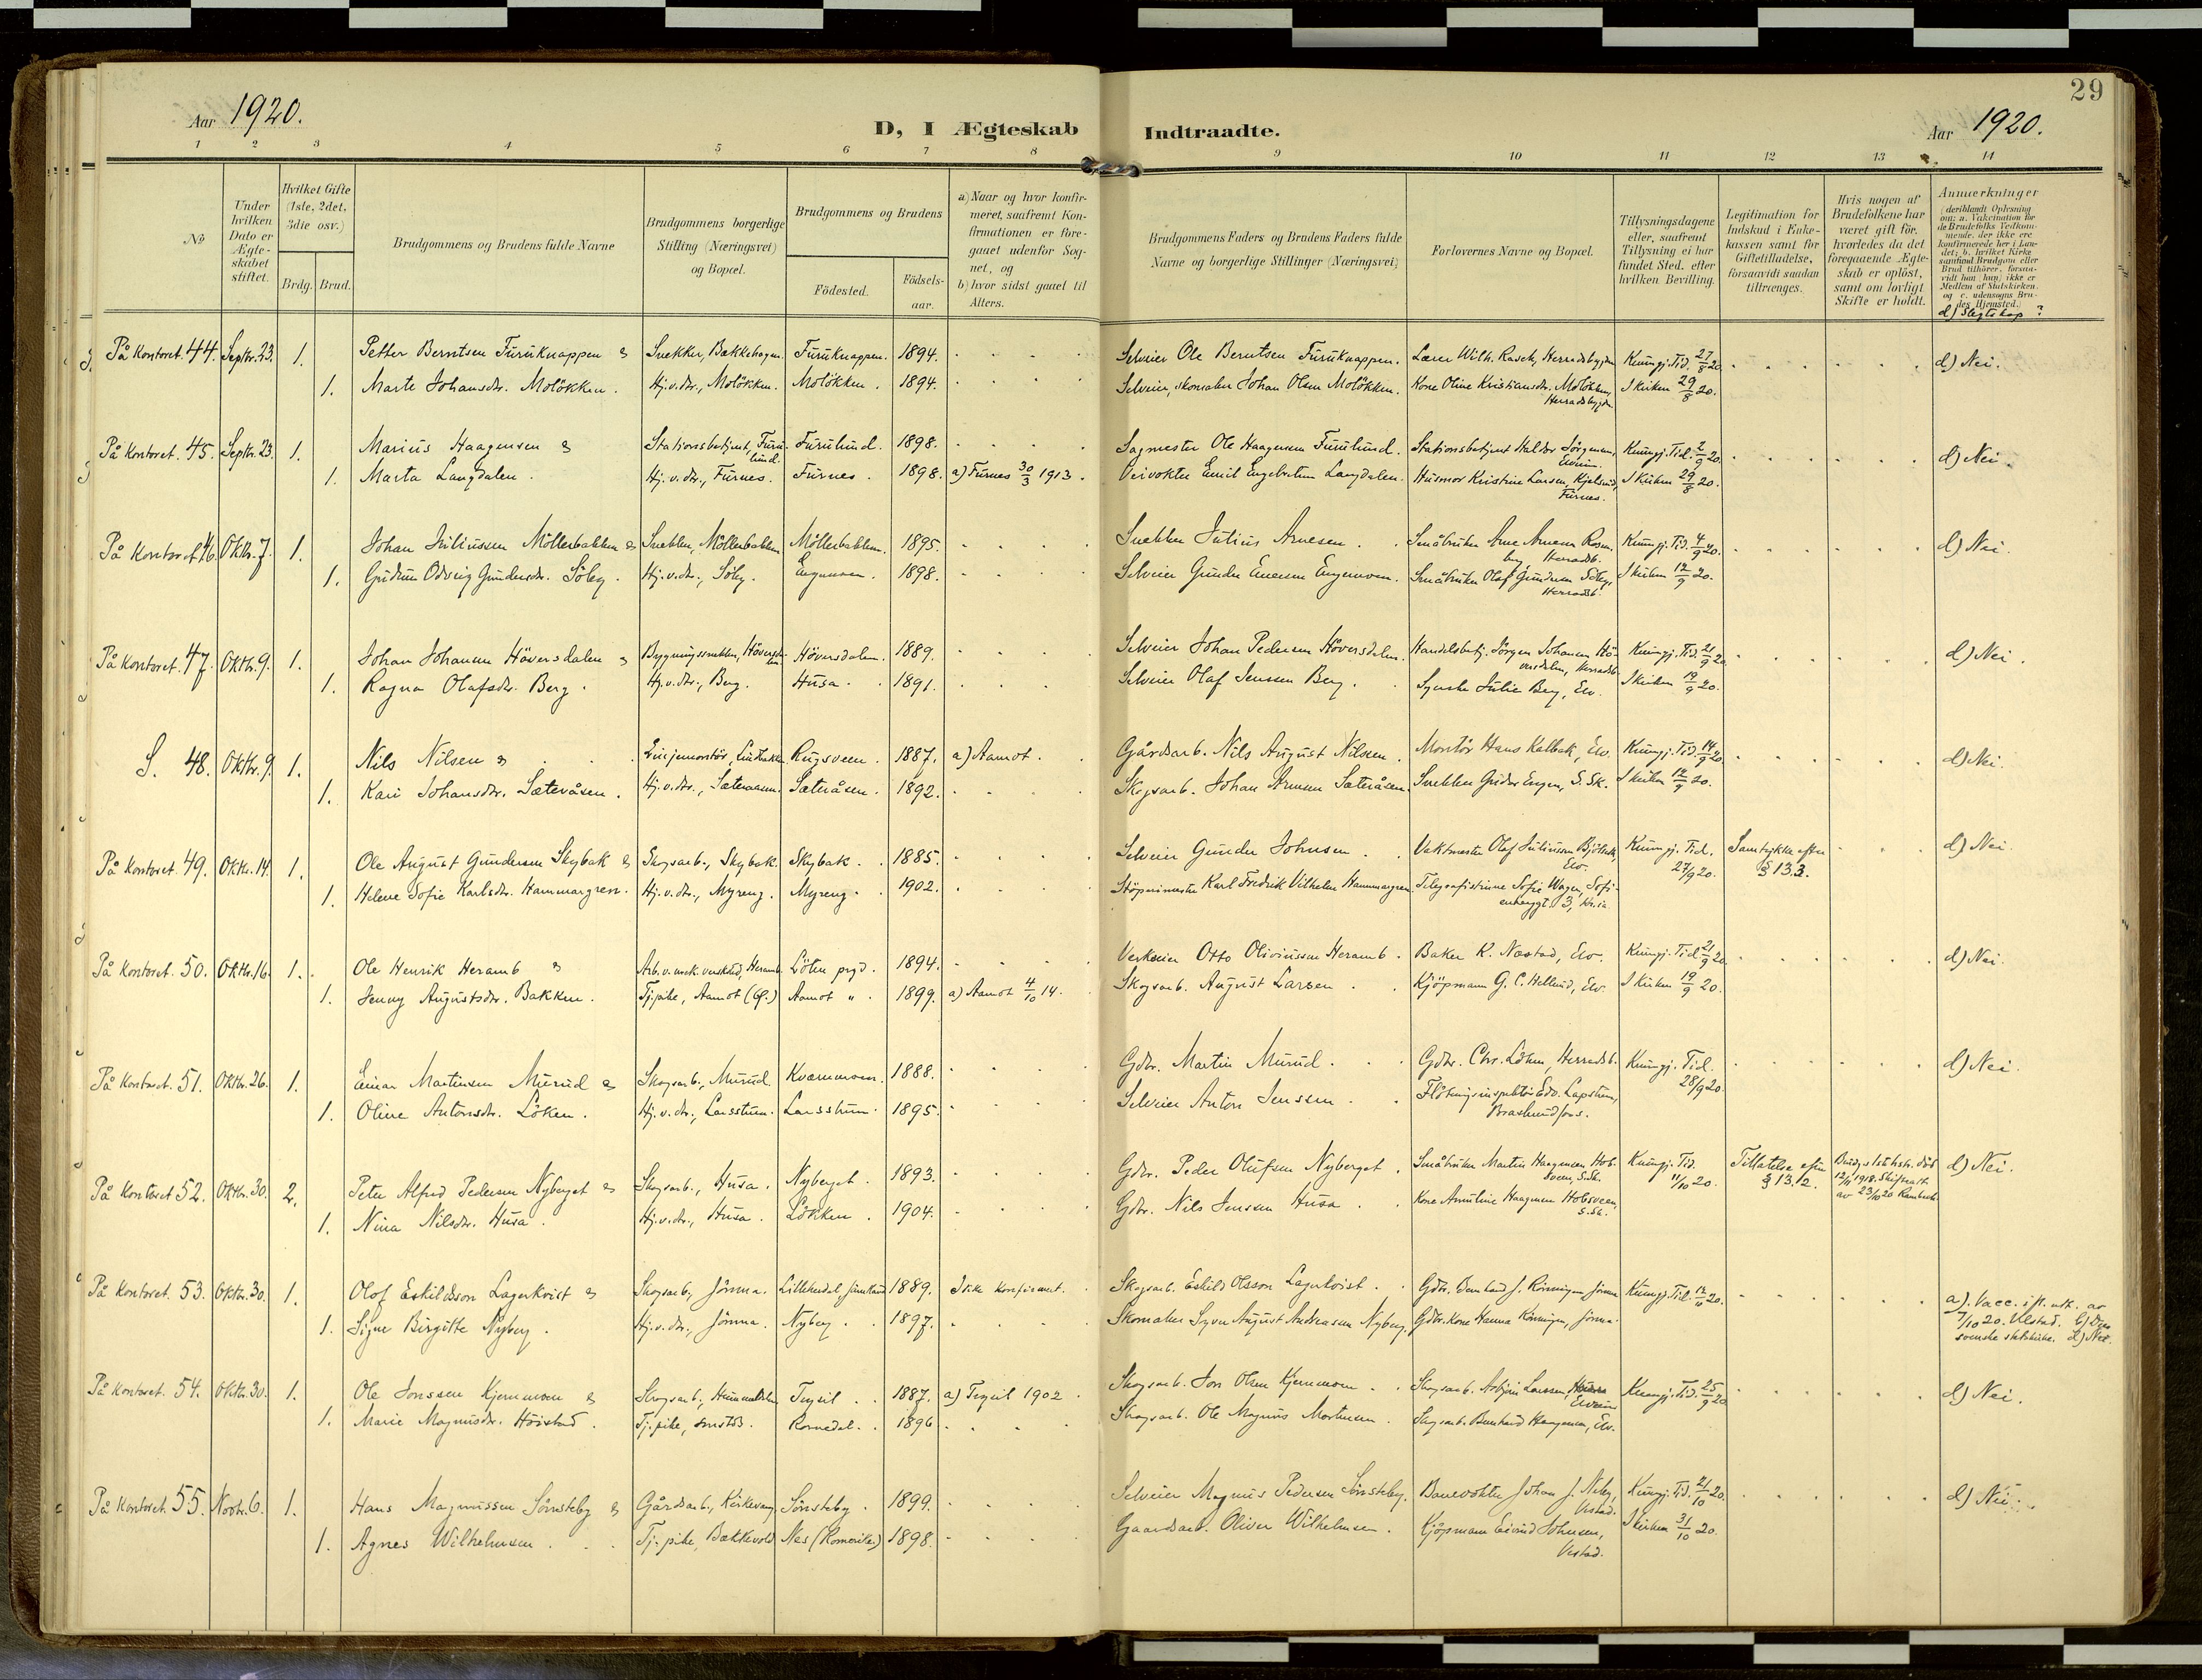 29
Aar 1920.
D, I Ægteskab Indtraadte.
Aar 1920.
1 2 3 4 5 6 7 8 9 10 11 12 13 14
No
Under hvilken Dato er Ægteskabet stiftet.
Hvilket Gifte (1ste, 2det, 3die osv.)
Brdg. Brud.
Brudgommens og Brudens fulde Navne
Brudgommens borgerlige Stilling (Næringsvei) og Bopæl.
Brudgommens og Brudens
Födested.
Födsels-aar.
a) Naar og hvor konfirmeret, saafremt Konfirmationen er foregaaet udenfor Sognet, og
b) hvor sidst gaaet til Alters.
Brudgommens Faders og Brudens Faders fulde Navne og borgerlige Stillinger (Næringsvei)
Forlovernes Navne og Bopæl.
Tillysningsdagene eller, saafremt Tillysning ei har fundet Sted, efter hvilken Bevilling.
Legitimation for Indskud i Enkekassen samt for Giftetilladelse, forsaavidt saadan tiltrænges.
Hvis nogen af Brudefolkene har været gift för, hvorledes da det foregaaende Ægteskab er oplöst, samt om lovligt Skifte er holdt.
Anmerkninger
d) Slegtskap ?
På kontoret. 44. Septbr. 23. 1. Petter Berntsen Furuknappen & Snekker, Bækkehagen. Furuknappen. 1894. Selveier Ole Berntsen Furuknappen. Lærer Wilh. Rasch, Herradsbygden Kunngj. Tid. 27/8 20. d) Nei.
1. Marte Johansdr. Molökken. Hj.v.dr., Molökken. Molökken. 1894. Selveier, skomaker Johan Olsen Molökken. Kone Oline Kristiansdr. Molökken, Herradsbygden. I kirken 29/8 20.
På kontoret. 45. Septbr. 23. 1. Marius Haagensen & Stationsbetjent, Furulund. Furulund. 1898. Sagmester Ole Haagensen Furulund. Stationsbetjent Haldor Jörgensen, Elverum. Kunngj. Tid. 2/9 20. d) Nei.
1. Marta Langdalen. Hj.v.dr., Furnes. Furnes. 1898. a) Furnes 30/3 1913. Veivokter Emil Engebretsen Langdalen. Husmor Kristine Larsen, Kjelsrud, Furnes. I kirken 29/8 20.
På kontoret. 46. Oktbr. 7. 1. Johan Juliussen Möllerbakken & Snekker, Möllerbakken Möllerbakken. 1895. Snekker Julius Arnesen. Småbruker Arne Arnesen Rosenberg, Herradsb. Kunngj. Tid. 4/9 20. d) Nei.
1. Gudrun Odveig Gundersdr. Söby. Hj.v.dr., Söby. Engmoen. 1898. Selveier Gunder Engmoen. Småbruker Olaf Gundersen Söby, Herradsb. I kirken 12/9 20.
På kontoret. 47. Oktbr. 9. 1. Johan Johansen Höversdalen & Bygningssnekker, Höversdalen Höversdalen. 1889. Selveier Johan Pedersen Höversdalen. Handelsbetj. Jörgen Johansen Höversdalen, Herradsb. Kunngj. Tid. 21/9 20 d) Nei.
1. Ragna Olafsdr. Berg. Hj.v.dr., Berg. Husa. 1891. Selveier Olaf Jenssen Berg. Syerske Julie Berg, Elv. I kirken 19/9 20.
S. 48. Oktbr. 9. 1. Nils Nilsen & Linjemontör, Lindbakken Rugsveen. 1887. a) Aamot. Gårdsarb. Nils August Nilsen. Montör Hans Kalbak, Elv. Kunngj. Tid. 14/9 20 d) Nei.
1. Kari Johansdr. Sæteråsen. Hj.v.dr., Sæteraasen. Sæteråsen. 1892. Skogsarb. Johan Arnesen Sæteråsen. Snekker Engen, S. Sk. I kirken 12/9 20.
På kontoret. 49. Oktbr. 14. 1. Ole August Gundersen Skybak & Skogsarb., Skybak. Skybak. 1885. Selveier Gunder Johnsen. Vaktmester Olaf Juliussen Björbæk, Elv. Kunngj. Tid. 27/9 20. Samtykke efter § 13.3. d) Nei.
1. Helene Sofie Karlsdr. Hammargren. Hj.v.dr., Myreng. Myreng. 1902. Stöperimester Karl Fredrik Vilhelm Hammargren Telegrafistinne Sofie Wager, Sofienberggt. 3, Kr.ia
På kontoret. 50. Oktbr. 16. 1. Ole Henrik Heramb & Arb. v. mek. verksted, Heramb. Löten prgd. 1894. Verkeier Otto Oliviussen Heramb. Baker K. Nastad, Elv. Kunngj. Tid. 21/9 20 d) Nei.
1. Jenny Augustsdr. Bakken. Tj.pike, Aamot (Gf.) Aamot " 1899. a) Aamot 4/10 14. Skogsarb. August Larsen Kjöpmann G. C. Hellund, Elv. I kirken 19/9 20.
På kontoret. 51. Oktbr. 26. 1. Einar Martinsen Murud & Skogsarb., Murud. Kvæmmoen. 1888. Gdbr. Martin Murud. Gdbr. Chr. Löken, Herradsb. Kunngj. Tid. 28/9 20. d) Nei.
1. Oline Antonsdr. Löken. Hj.v.dr., Larsstuen. Larsstuen. 1895. Selveier Anton Jenssen. Flötningsinspektör Edv. Lapstuen, Braskereidfoss.
På kontoret 52. Oktbr. 30. 2. Peter Alfred Pedersen Nyberget & Skogsarb., Husa. Nyberget. 1893. Gdbr. Peder Olufsen Nyberget. Småbruker Martin Haagensen Hobsveen, S.Sk. Kunngj. Tid. 11/10 20. Tillatelse efter § 13.2. Brudgs 1ste hstr. död 12/11 1918. Skifteatt. av 23/10 20 d) Nei.
1. Nina Nilsdr. Husa. Hj.v.dr., Husa. Lökken. 1904. Gdbr. Nils Jenssen Husa. Kone Annoline Haagensen Hobsveen, S.Sk.
På kontoret. 53. Oktbr. 30. 1. Olof Eskildsson Lagerkvist & Skogsarb., Jömna. Lillherdal, Jämtland 1889. Ikke konfirmert. Skogsarb. Eskild Olsson Lagerkvist. Gdbr. Bernhard J. Rönningen Jömna Kunngj. Tid. 12/10 20. a). Vacc. ifl. att. av 7/10 20. Ulstad. b) Den svenske statskirke. d) Nei.
1. Signe Birgitte Nyberg. Hj.v.dr., Jömna. Nyberg. 1897. Skomaker Syver August Andreassen Nyberg. Gdbr.kone Hanna Rönningen, Jömna.
På kontoret. 54. Oktbr. 30. 1. Ole Jonssen Kjernmoen & Skogsarb., Trysil. 1887. a) Trysil 1902. Skogsarb. Jon Olsen Kjernmoen. Skogsarb. Asbjörn Larssen, Elverum Kunngj. Tid. 25/9 20 d) Nei.
1. Marie Magnusdr. Höistad. Tj.pike, Romedal. 1896 Skogsarb. Ole Magnus Mortensen. Skogsarb. Bernhard Haagensen, Elv.
På kontoret 55. Novbr. 6. 1. Hans Magnussen Sörnsteby & Gårdsarb., Kirkevang Sörnsteby. 1899. Selveier Magnus Pedersen Sörnsteby. Banevokter Johan J. Neby, Vestad. Kunngj. Tid. 21/10 20. d) Nei.
1. Agnes Wilhelmsen. Tj.pike, Bækkevold Nes (Romerike) 1898. Gaardsarb. Oliver Wilhelmsen. Kjöpmann Eivind Johnsen, Vestad. I kirken 31/10 20.